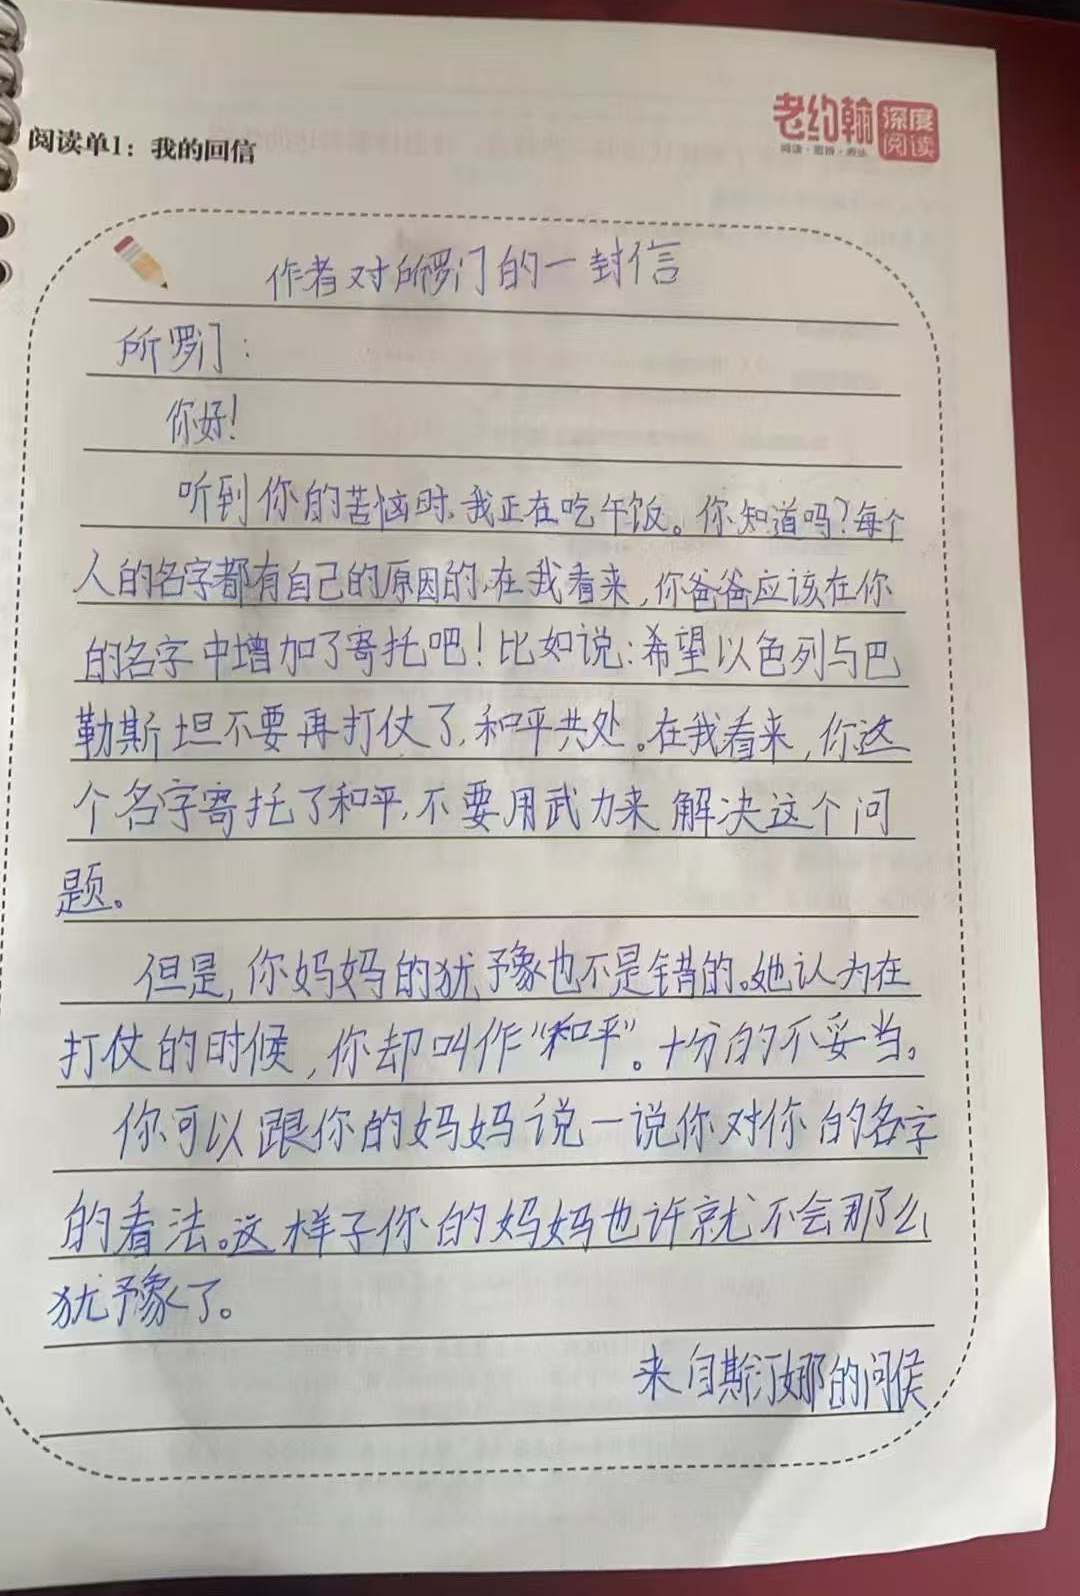 老约翰 深度阅读
阅读·思辨·表达
阅读单1：我的回信
作者对所罗门的一封信
所罗门：
你好！
听到你的苦恼时，我正在吃午饭。你知道吗？每个
人的名字都有自己的原因的，在我看来，你爸爸应该在你
的名字中增加了寄托吧！比如说：希望以色列与巴
勒斯坦不要再打仗了，和平共处。在我看来，你这
个名字寄托了和平，不要用武力来解决这个问
题。
但是，你妈妈的犹予象也不是错的。她认为在
打仗的时候，你却叫作“和平”。十分的不妥当。
你可以跟你的妈妈说一说你对你的名字
的看法。这样子你的妈妈也许就不会那么
犹豫了。
来自斯汀娜的问侯